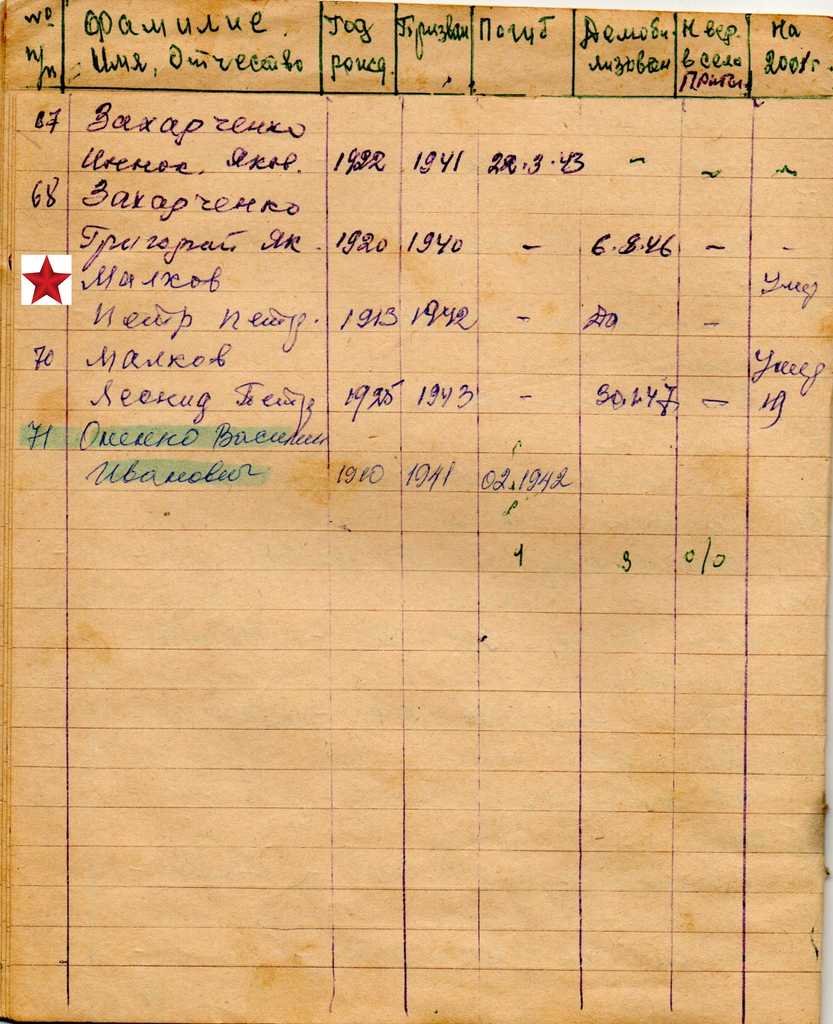 № Фамилие. Год Призван Погиб Демоби- Н вед. На
п/п Имя, Отчество рожд. лизован в село 2001г.
67 Захарченко
Иннок. Яков. 1922 1941 22.3.43 - - -
68 Захарченко
Григорий Як. 1920 1940 - 6.8.46 - -
Малков Умер
Петр Петр. 1913 1942 - Да -
70 Малков Умер
Леонид Петр 1925 1943 - -
71 Оненко Василий
Иванович 1910 1941 02.1942
1 3 0/0